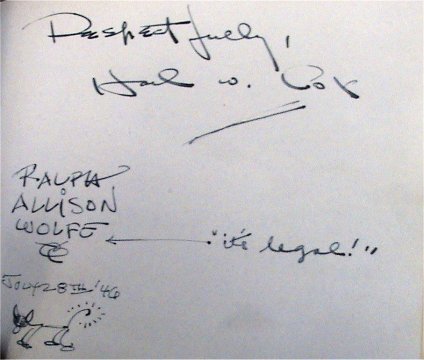 Respectfully,
Hal W. Cox
RALPH
ALLISON
WOLFE
"it's legal!"
JULY 28TH '46